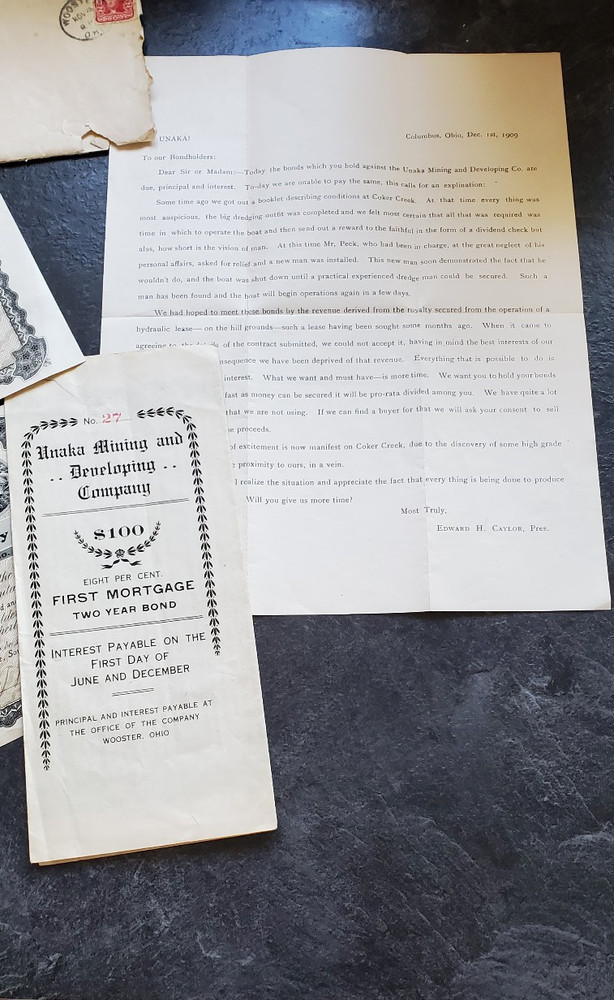 WOOST
NOV
UNAKA!
Columbus, Ohio, Dec. 1st, 1909
To our Bondholders:
Dear Sir or Madam:—Today the bonds which you hold against the Unaka Mining and Developing Co. are
due, principal and interest. To-day we are unable to pay the same, this calls for an explination:
Some time ago we got out a booklet describing conditions at Coker Creek. At that time every thing was
most auspicious, the big dredging outfit was completed and we felt most certain that all that was required was
time in which to operate the boat and then send out a reward to the faithful in the form of a dividend check but
alas, how short is the vision of man. At this time Mr. Peck, who had been in charge, at the great neglect of his
personal affairs, asked for relief and a new man was installed. This new man soon demonstrated the fact that he
wouldn't do, and the boat was shut down until a practical experienced dredge man could be secured. Such a
man has been found and the boat will begin operations again in a few days.
We had hoped to meet these bonds by the revenue derived from the royalty secured from the operation of a
hydraulic lease—on the hill grounds—such a lease having been sought some months ago. When it came to
agreeing to the details of the contract submitted, we could not accept it, having in mind the best interests of our
nsequence we have been deprived of that revenue. Everything that is possible to do is
interest. What we want and must have—is more time. We want you to hold your bonds
fast as money can be secured it will be pro-rata divided among you. We have quite a lot
that we are not using. If we can find a buyer for that we will ask your consent to sell
e proceeds.
of excitement is now manifest on Coker Creek, due to the discovery of some high grade
proximity to ours, in a vein.
I realize the situation and appreciate the fact that every thing is being done to produce
Will you give us more time?
Most Truly,
EDWARD H. CAYLOR, Pres.
No. 27
Unaka Mining and
.. Developing ..
Company
$100
EIGHT PER CENT.
FIRST MORTGAGE
TWO YEAR BOND
INTEREST PAYABLE ON THE
FIRST DAY OF
JUNE AND DECEMBER
PRINCIPAL AND INTEREST PAYABLE AT
THE OFFICE OF THE COMPANY
WOOSTER, OHIO